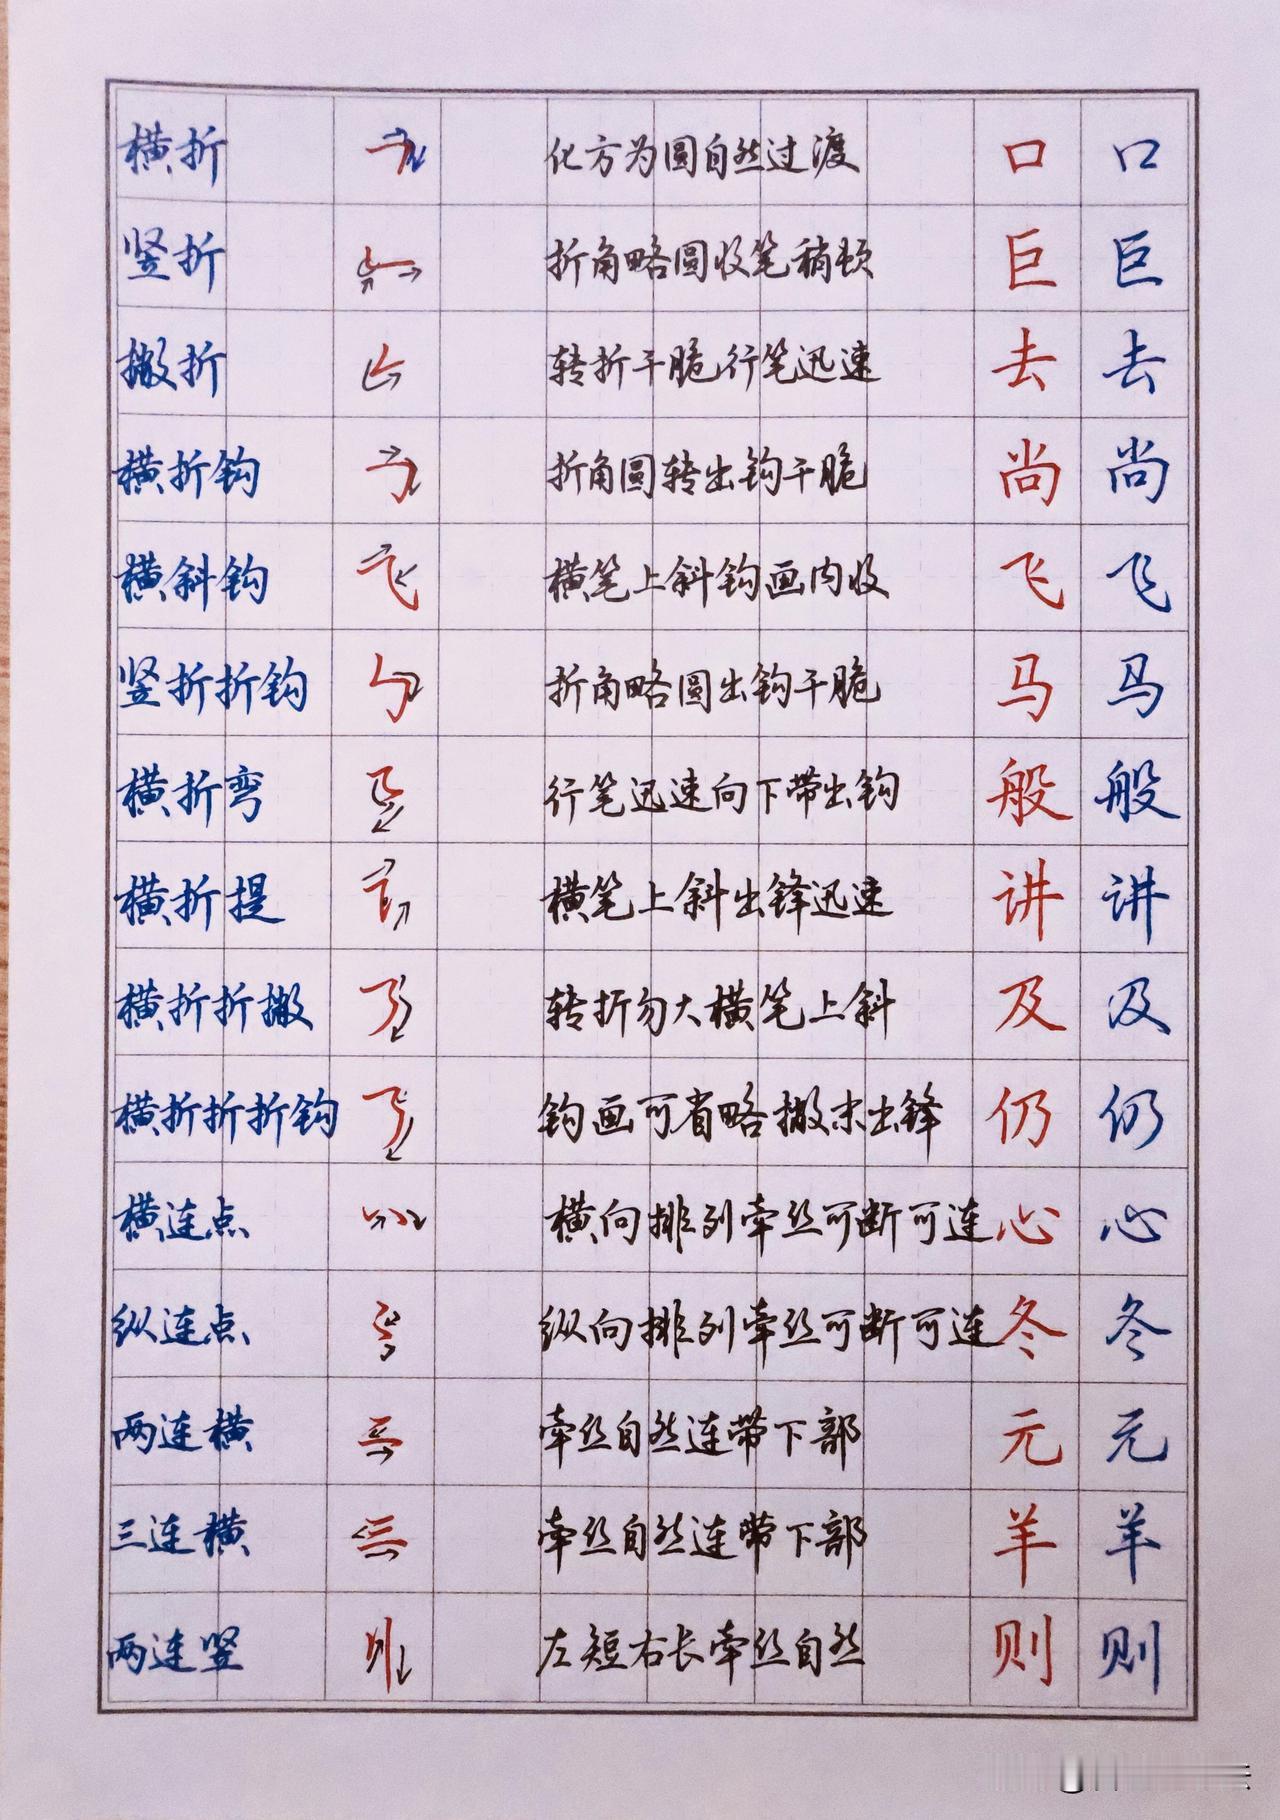 横折 化方为圆自然过渡 口 口
竖折 折角略圆收笔稍顿 巨 巨
撇折 转折干脆行笔迅速 去 去
横折钩 折角圆转出钩干脆 尚 尚
横斜钩 横笔上斜钩画内收 飞 飞
竖折折钩 折角略圆出钩干脆 马 马
横折弯 行笔迅速向下带出钩 般 般
横折提 横笔上斜出锋迅速 讲 讲
横折折撇 转折勿大横笔上斜 及 及
横折折折钩 钩画可省略撇末出锋 仍 仍
横连点 横向排列牵丝可断可连 心 心
纵连点 纵向排列牵丝可断可连 冬 冬
两连横 牵丝自然连带下部 元 元
三连横 牵丝自然连带下部 羊 羊
两连竖 左短右长牵丝自然 则 则